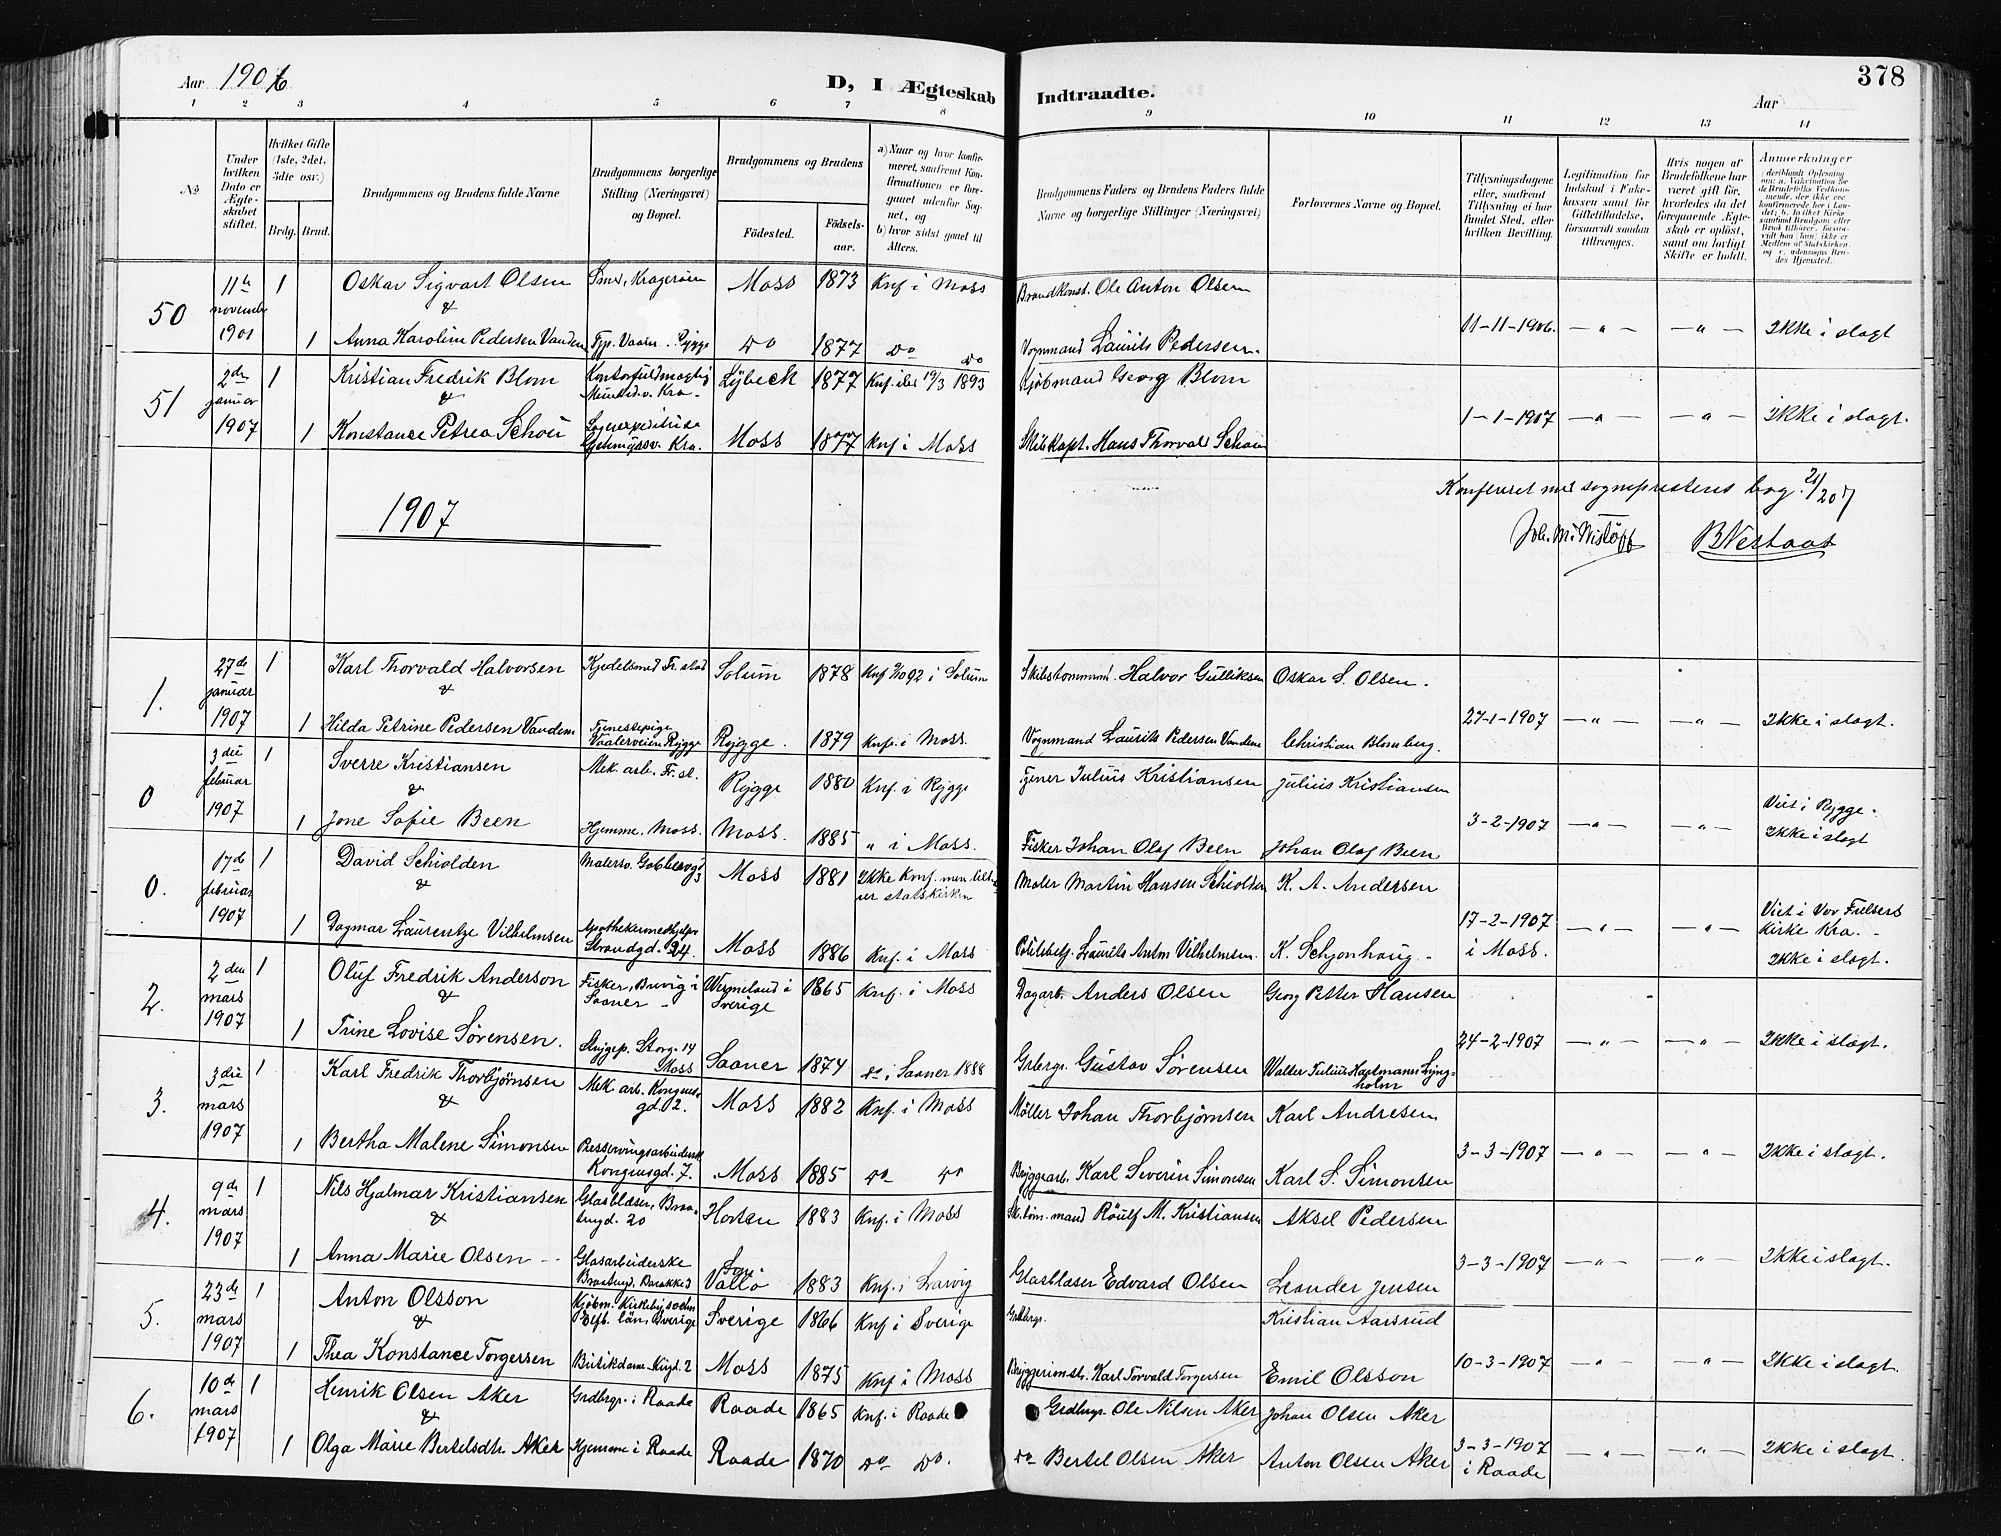 Aar 1906
D, I Ægteskab Indtraadte.
Aar
378
1 2 3 4 5 6 7 8 9 10 11 12 13 14
No
Under hvilken Dato er Ægteskabet stiftet.
Hvilket Gifte (1ste, 2det, 3die osv.)
Brdg. Brud.
Brudgommens og Brudens fulde Navne
Brudgommens borgerlige Stilling (Næringsvei) og Bopæl.
Brudgommens og Brudens
Fødested.
Fødselsaar.
a) Naar og hvor konfirmeret, saafremt Konfirmationen er foregaaet udenfor Sognet, og
b) hvor sidst gaaet til Alters.
Brudgommens Faders og Brudens Faders fulde Navne og borgerlige Stillinger (Næringsvei)
Forlovernes Navne og Bopæl.
Tillysningsdagene eller, saafremt Tillysning ei har fundet Sted, efter hvilken Bevilling.
Legitimation for Indskud i Enkekassen samt for Giftetilladelse, forsaavidt saadan tiltrænges.
Hvis nogen af Brudefolkene har været gift før, hvorledes da det foregaaende Ægteskab er opløst, samt om lovligt Skifte er holdt.
Anmærkninger
50 11te november 1901 1 Oskar Sigvart Olsen Smed, Kragerøen Moss 1873 Knf i Moss Brandkonst. Ole Anton Olsen
&
1 Anna Karoline Pedersen Vanden Rygge Do 1877 Do Do Vognmand Laurits Pedersen. 11-11-1906. — " — — " — Ikke i slagt
51 2den januar 1907 1 Kristian Fredrik Blom Kra. Lÿbeck 1877 19/3 1893 Kjøbmand Georg Blom
&
1 Konstance Petrea Schou Kra. Moss 1877 Knf i Moss Skibskapt. Hans Thorvald Schou 1-1-1907 — " — — " — Ikke i slagt.
1907
Konfereret med sogneprestens bog
B Nestaas
1. 27de januar 1907 1 Karl Thorvald Halvorsen Kjedelsmed Fr.stad Solum 1878 i Solum Halvor Gulliksen Oskar S. Olsen.
&
1 Hilda Petrine Pedersen Vanden Tjenestepige Vaalerveien Rygge Rygge. 1879 Knf. i Moss. Vognmand Laurits Pedersen Vanden Christian Blomberg. 27-1-1907 — " — — " — Ikke i slagt.
0 3die februar 1907 1 Sverre Kristiansen Mek. arb. Fr.st. Rygge 1880 Knf. i Rygge Julius Kristiansen Julius Kristiansen
&
1 Jone Sofie Been Hjemme, Moss. Moss. 1885 " i Moss. Fisker Johan Olaf Been Johan Olaf Been 3-2-1907 — " — — " — Viet i Rygge. Ikke i slagt
0. 17de februar 1907 1 David Schiolden Malersv. Moss 1881 Ikke Knf. men tilhører statskirken Maler Martin Hansen Schiolden K. A. Andersen
&
1 Dagmar Laurentze Vilhelmsen Strandgd. 24. Moss 1886 Knf. i Moss Laurits Anton Vilhelmsen. K. Schjonhaug 17-2-1907 i Moss. — " — — " — Viet i Vor Frelsers Kirke Kra. Ikke i slagt.
2. 2den mars 1907 1 Oluf Fredrik Anderson Fisker, Buvig i Saaner Wermeland i Sverige 1865 Knf. i Moss Dagarb. Anders Olsen Georg Petter Hansen
&
1 Trine Lovise Sørensen. Strygep. Storg. 14 Moss Saaner 1874 Do i Saaner 1888 Grbrgr. Gustav Sørensen 24-2-1907 — " — — " — Ikke i slagt.
3. 3die mars 1907 1 Karl Fredrik Thorbjørnsen Mek. arb. Kongensgd. 2. Moss 1882 Knf. i Moss Møller Johan Thorbjørnsen Karl Andresen
&
1 Bertha Malene Simonsen Kongensgd. 7. Moss 1885 Do Do Bryggearb. Karl Severin Simonsen Karl S. Simonsen 3-3-1907 — " — — " — Ikke i slagt.
4. 9de mars 1907 1 Nils Hjalmar Kristiansen Glasblæser, 20 Horten 1883 Knf. i Moss M. Kristiansen Aksel Pedersen
&
1 Anna Marie Olsen Glasarbeiderske Vallø 1883 Knf. i Larvig Glasblæser Edvard Olsen Leander Jensen 3-3-1907 — " — — " — Ikke i slagt.
5. 23de mars 1907 1 Anton Olsson Sverige Sverige 1866 Knf i Sverige Grdbrgr. Kristian Aarsrud
&
1 Thea Konstance Torgersen Butikdame Moss 1875 Knf i Moss Karl Torvald Torgersen Emil Olsson 10-3-1907 — " — — " — Ikke i slagt.
6. 10de mars 1907 1 Henrik Olsen Aker Grdbrgr. i Raade Raade 1865 Knf. i Raade Grdbrgr. Ole Nilsen Aker Johan Olsen Aker
&
1 Olga Marie Bertelsdtr. Aker Hjemme i Raade Raade 1870 Do Do. Do Bertel Olsen Aker Anton Olsen Aker 3-3-1907 i Raade — " — — " — Ikke i slagt